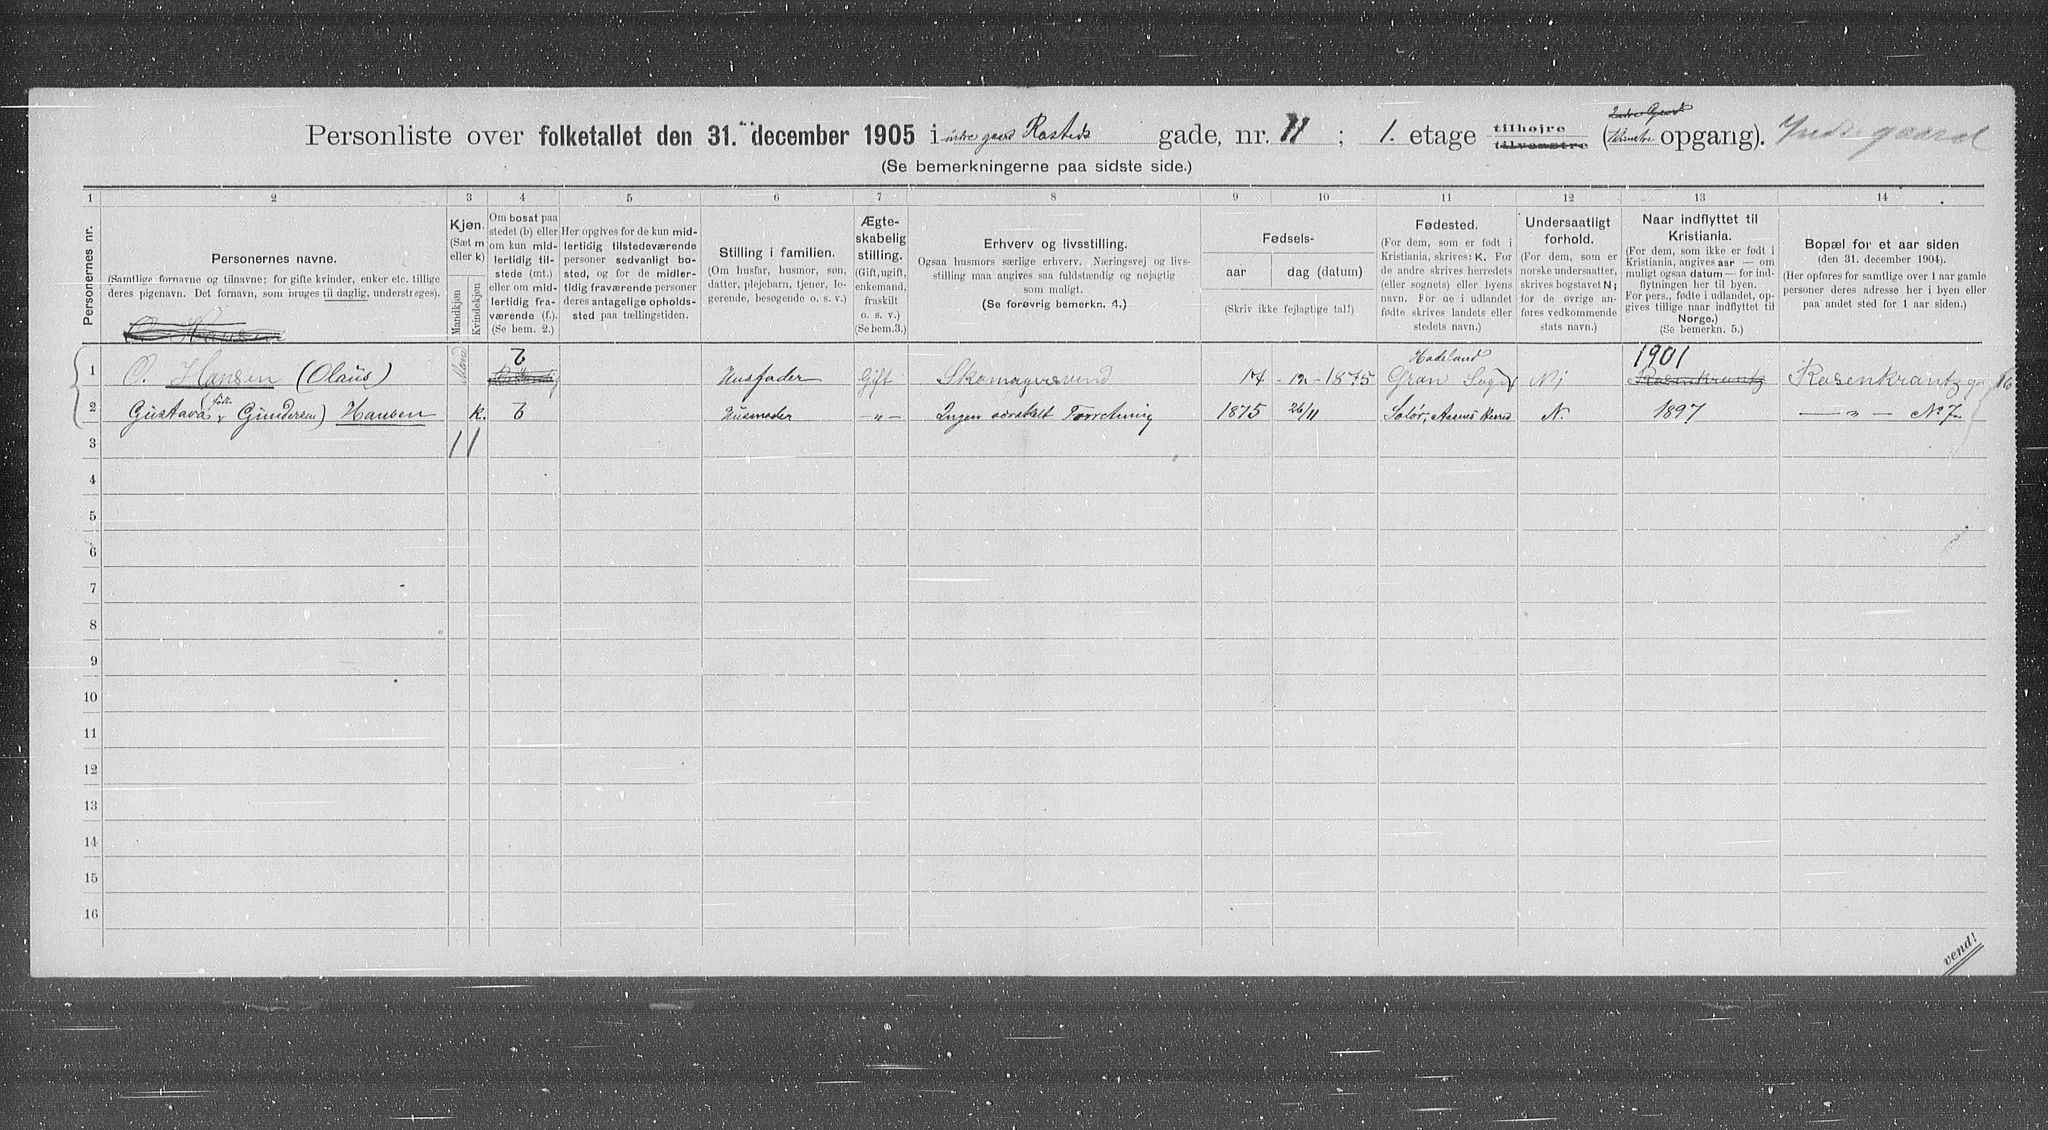 Personliste over folketallet den 31. december 1905 i indre gaard Rosteds gade, nr. 11 ; 1. etage tilhøjre tilvenstre ( opgang). Indre gaard
(Se bemerkningerne paa sidste side.)
1 2 3 4 5 6 7 8 9 10 11 12 13 14
Personernes nr.
Personernes navne.
(Samtlige fornavne og tilnavne; for gifte kvinder, enker etc. tillige
deres pigenavn. Det fornavn, som bruges til daglig, understreges).
Kjøn.
(Sæt m
eller k)
Mandkjøn
Kvindekjøn
Om bosat paa
stedet (b) eller
om kun mid-
lertidig til-
stede (mt.)
eller om mid-
lertidig fra-
værende (f.).
(Se bem. 2.)
Her opgives for de kun mid-
lertidig tilstedeværende
personer sedvanlig bo-
sted, og for de midler-
tidig fraværende personer
deres antagelige opholds-
sted paa tællingstiden.
Stilling i familien.
(Om husfar, husmor, søn,
datter, plejebarn, tjener, lo-
gerende, besøgende o. s. v.)
Ægte-
skabelig
stilling.
(Gift, ugift,
enkemand,
fraskilt
o. s. v.)
(Se bem. 3.)
Erhverv og livsstilling.
Ogsaa husmors særlige erhverv. Næringsvej og livs-
stilling maa angives saa fuldstændig og nøjagtig
som muligt.
(Se forøvrig bemerkn. 4.)
Fødsels-
aar dag (datum)
(Skriv ikke fejlagtige tal!)
Fødested.
(For dem, som er født i
Kristiania, skrives: K. For
de andre skrives herredets
(eller sognets) eller byens
navn. For de i udlandet
fødte skrives landets eller
stedets navn.)
Undersaatligt
forhold.
(For dem, som er
norske undersaatter,
skrives bogstavet N;
for de øvrige an-
føres vedkommende
stats navn.)
Naar indflyttet til
Kristiania.
(For dem, som ikke er født i
Kristiania, angives aar — om
muligt ogsaa datum — for ind-
flytningen her til byen.
For pers., fødte i udlandet, op-
gives tillige naar indflyttet til
Norge.)
(Se bemerkn. 5.)
Bopæl for et aar siden
(den 31. december 1904).
(Her opføres for samtlige over 1 aar gamle
personer deres adresse her i byen eller
paa andet sted for 1 aar siden.)
O. Hansen
1 O. Hansen (Olaüs) Mand b Husfader Gift Skomagersvend 17 - 12 - 1875 Hadeland Gran Sogn N 1901 Rosenkrantz Rosenkrantz g 16
2 Gustava (født Gundersen) Hansen k. b Husmoder —„— Ingen særskilt Forretning 1875 26/11 Solør, Aasnes Herred N. 1897 —„— No 7
3 1 1
4
5
6
7
8
9
10
11
12
13
14
15
16
vend!